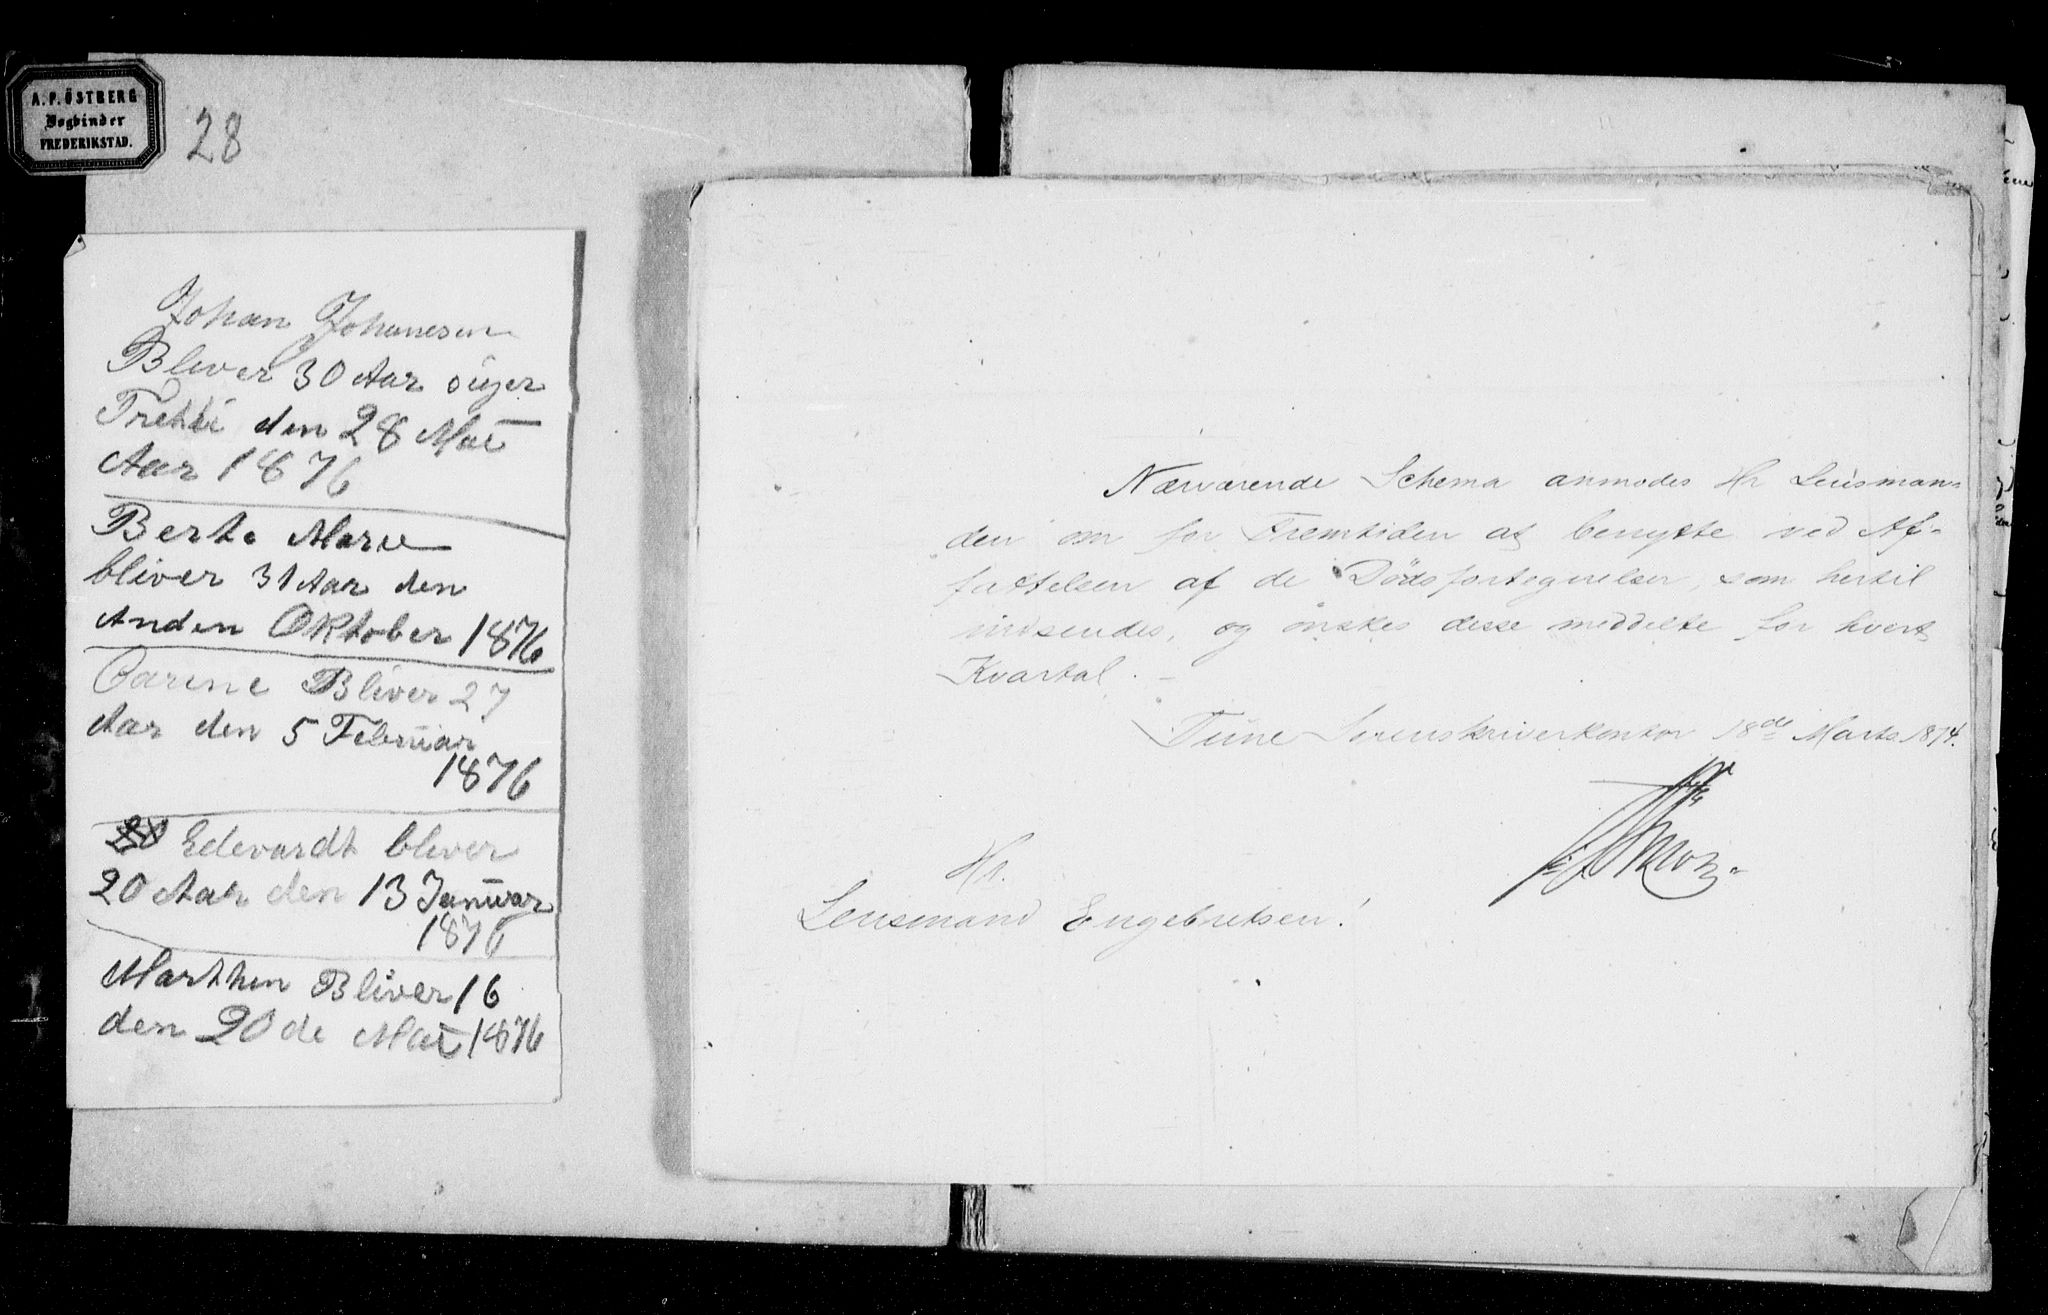 A. P. ÖSTBERG
Bogbinder
FREDERIKSTAD.
28
Johan Johanesen
Bliver 30 Aar siger
Tretti den 28 Mai
Aar 1876
Berte Marie
bliver 31 Aar den
Anden Oktober 1876
Carine Bliver 27
Aar den 5 Februar
1876
Edevardt bliver
20 Aar den 13 Januar
1876
Marthen Bliver 16
den 20 de Mai 1876
Nærværende Schema anmodes Hr Lensman-
den om for Fremtiden at benytte ved Af-
fattelsen af de Dödsfortegnelser, som hertil
indsendes, og önskes disse meddelte for hvert
Kvartal. -
Tune Sorenskriverkontor 18de Marts 1874.
Hr.
Lensmand Engebretsen!